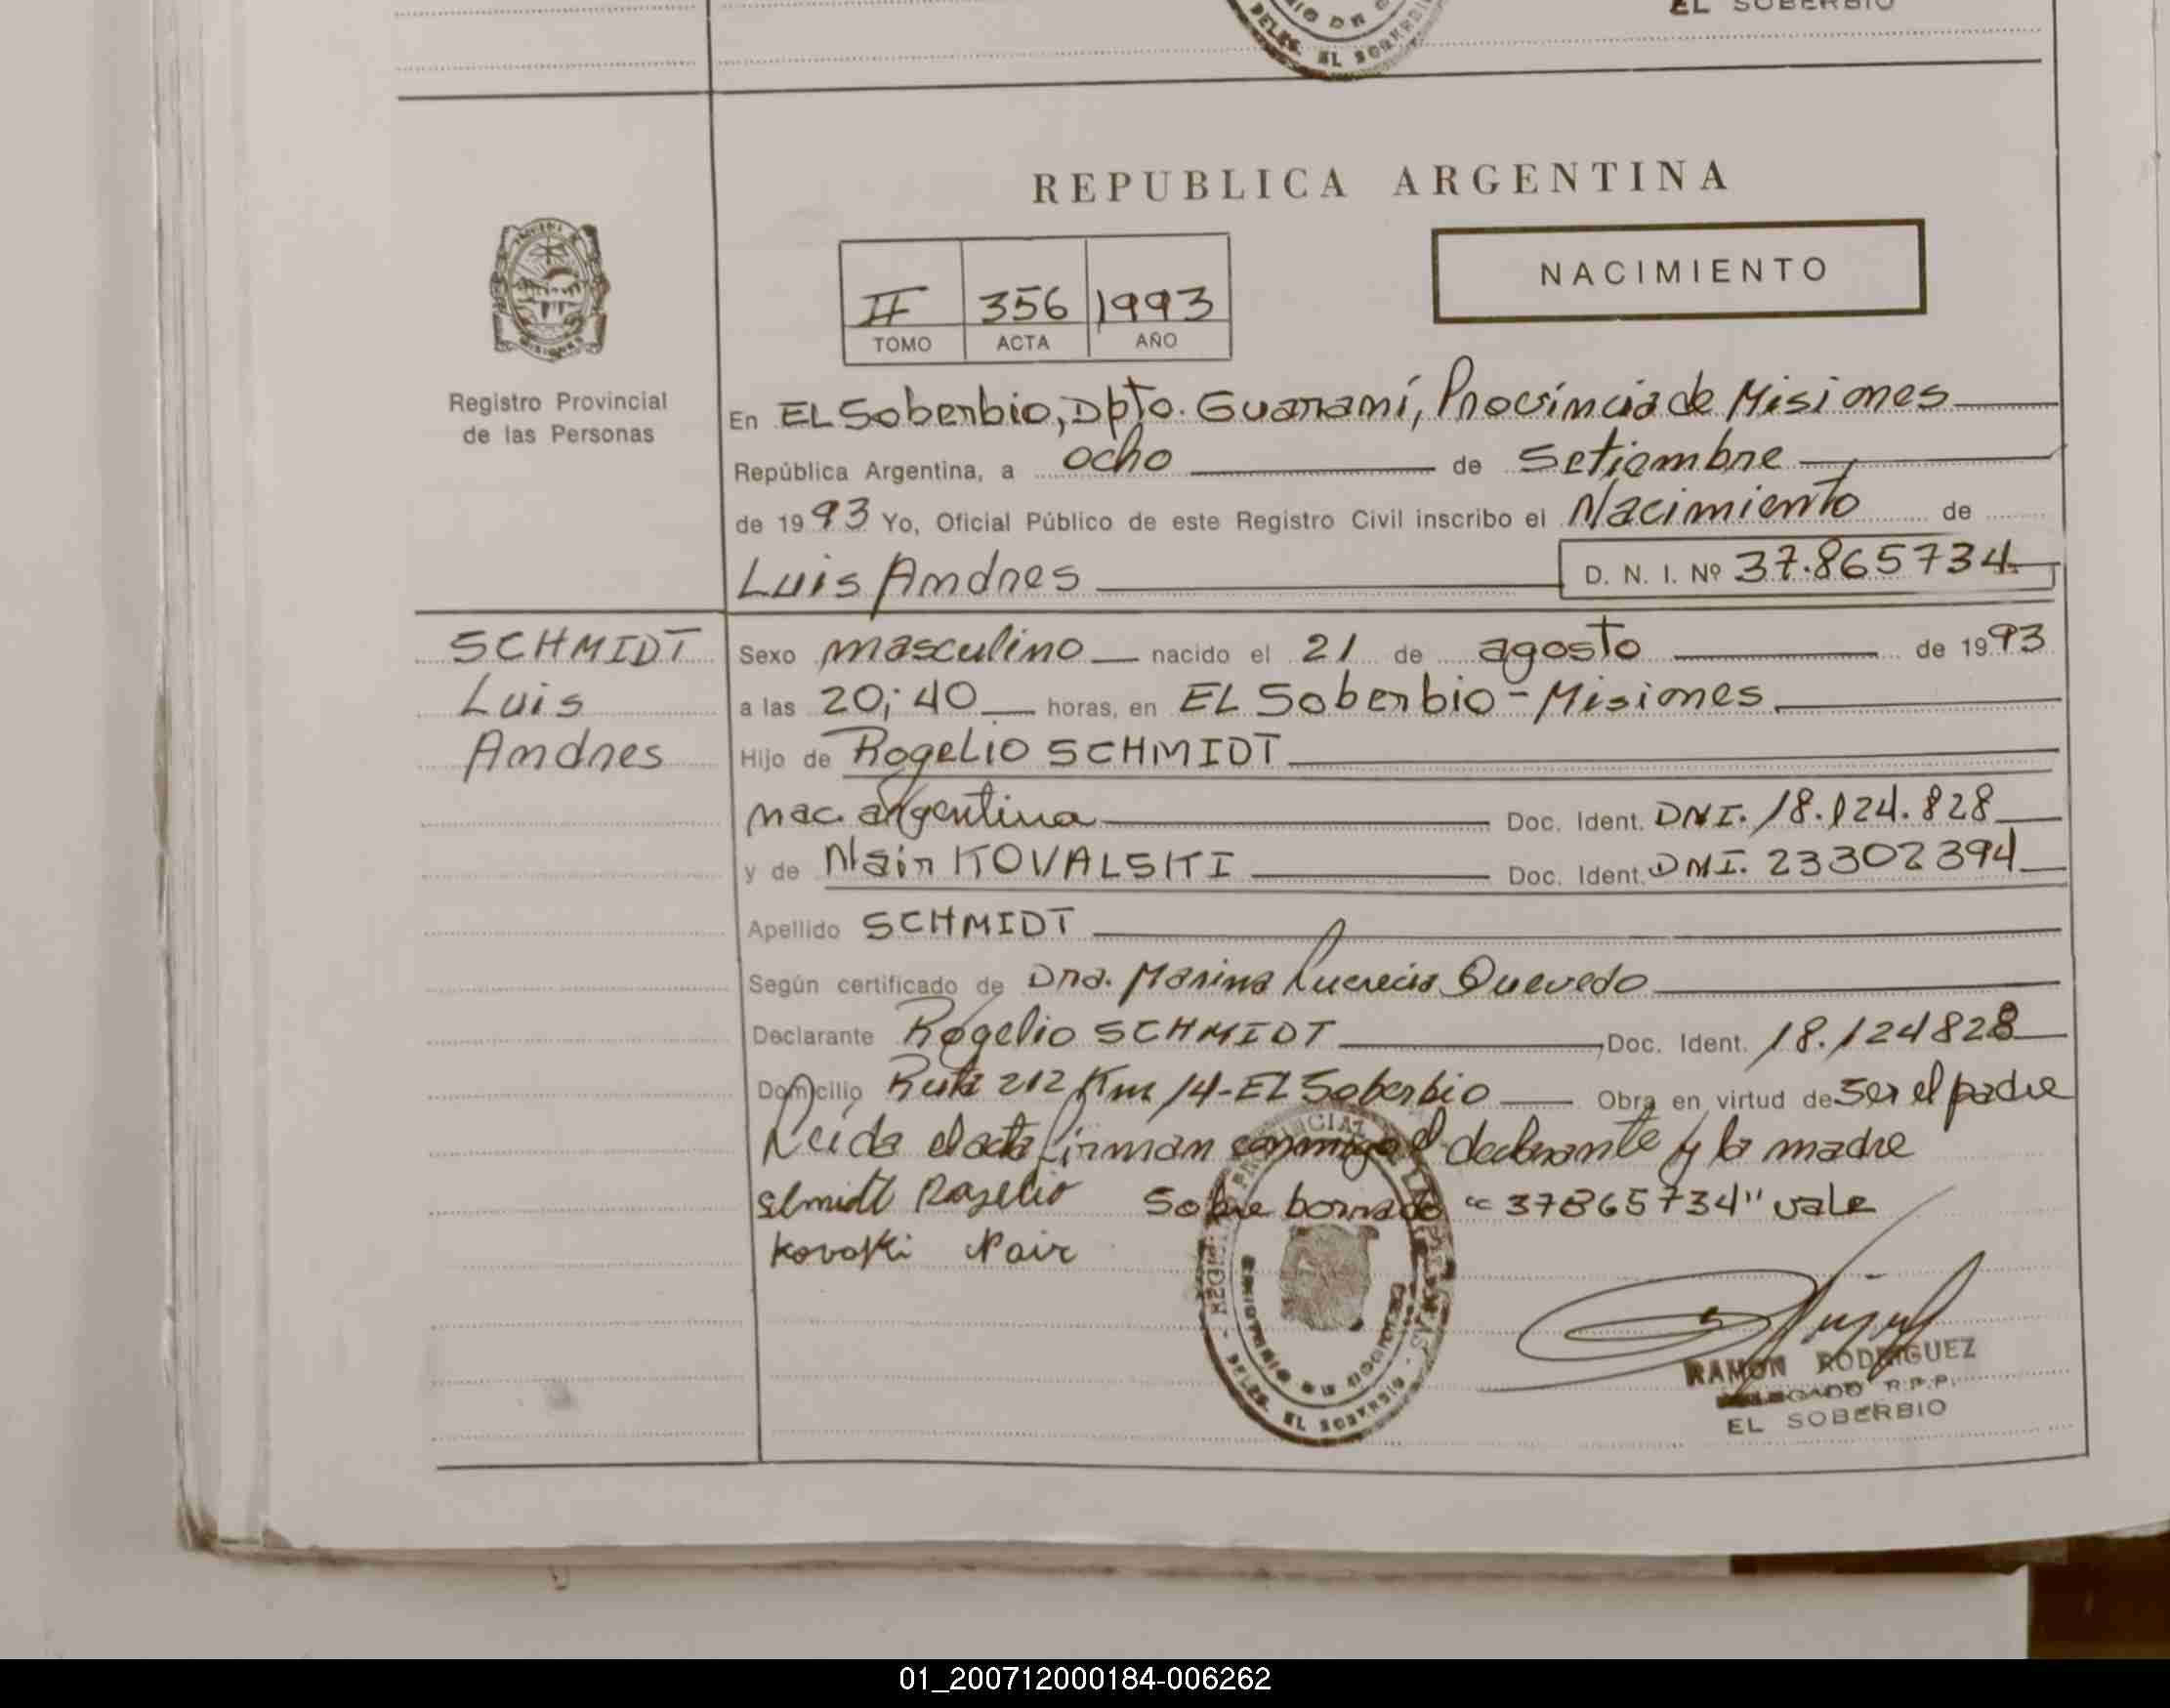 EL SOBERBIO
DELEG. EL SOBERBIO
REPUBLICA ARGENTINA
NACIMIENTO
II 356 1993
TOMO ACTA AÑO
MISIONES
Registro Provincial
de las Personas
En EL Soberbio, Dpto. Guaraní, Provincia de Misiones
República Argentina, a ocho de Setiembre
de 1993 Yo, Oficial Público de este Registro Civil inscribo el Nacimiento de
Luis Andres D. N. I. Nº 37.865734
SCHMIDT
Luis
Andres
Sexo masculino nacido el 21 de agosto de 1993
a las 20;40 horas, en EL Soberbio - Misiones.
Hijo de Rogelio SCHMIDT
nac. argentina Doc. Ident. DNI. 18.124.828
y de Nair KOVALSKI Doc. Ident. DNI. 23302394
Apellido SCHMIDT
Según certificado de Dra. Marina Lucrecia Quevedo
Declarante Rogelio SCHMIDT Doc. Ident. 18.124828
Domicilio Ruta 212 Km 14-EL Soberbio Obra en virtud de ser el padre
Leida el acta firman conmigo el declarante y la madre
Rogelio Sobre borrado "37865734" vale
Nair
DELEG. EL SOBERBIO
RAMON RODRIGUEZ
DELEGADO R.P.P.
EL SOBERBIO
01_200712000184-006262